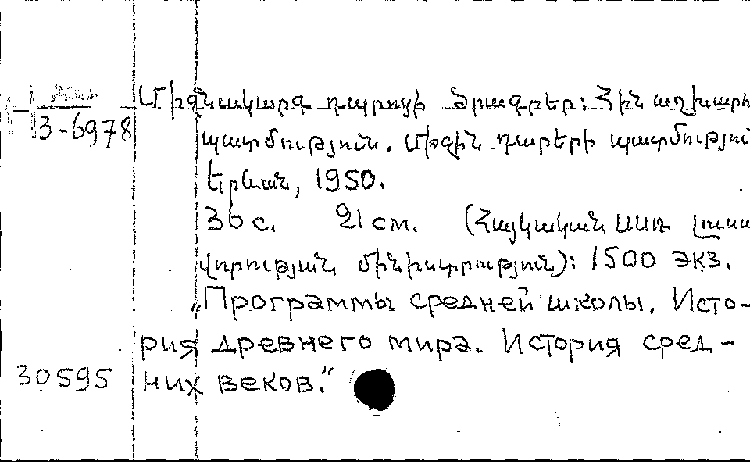 Միջնակարգ դպրոցի ծրագրեր: Հին աշխարհի
3-6978
պատմություն. Միջին դարերի պատմություն
Երևան, 1950.
36 с. 21 см. (Հայկական ՍՍՌ լուսա
վորության մինիստրություն): 1500 экз.
„Программы средней школы. Исто-
рия древнего мира. История сред-
30595 них веков."